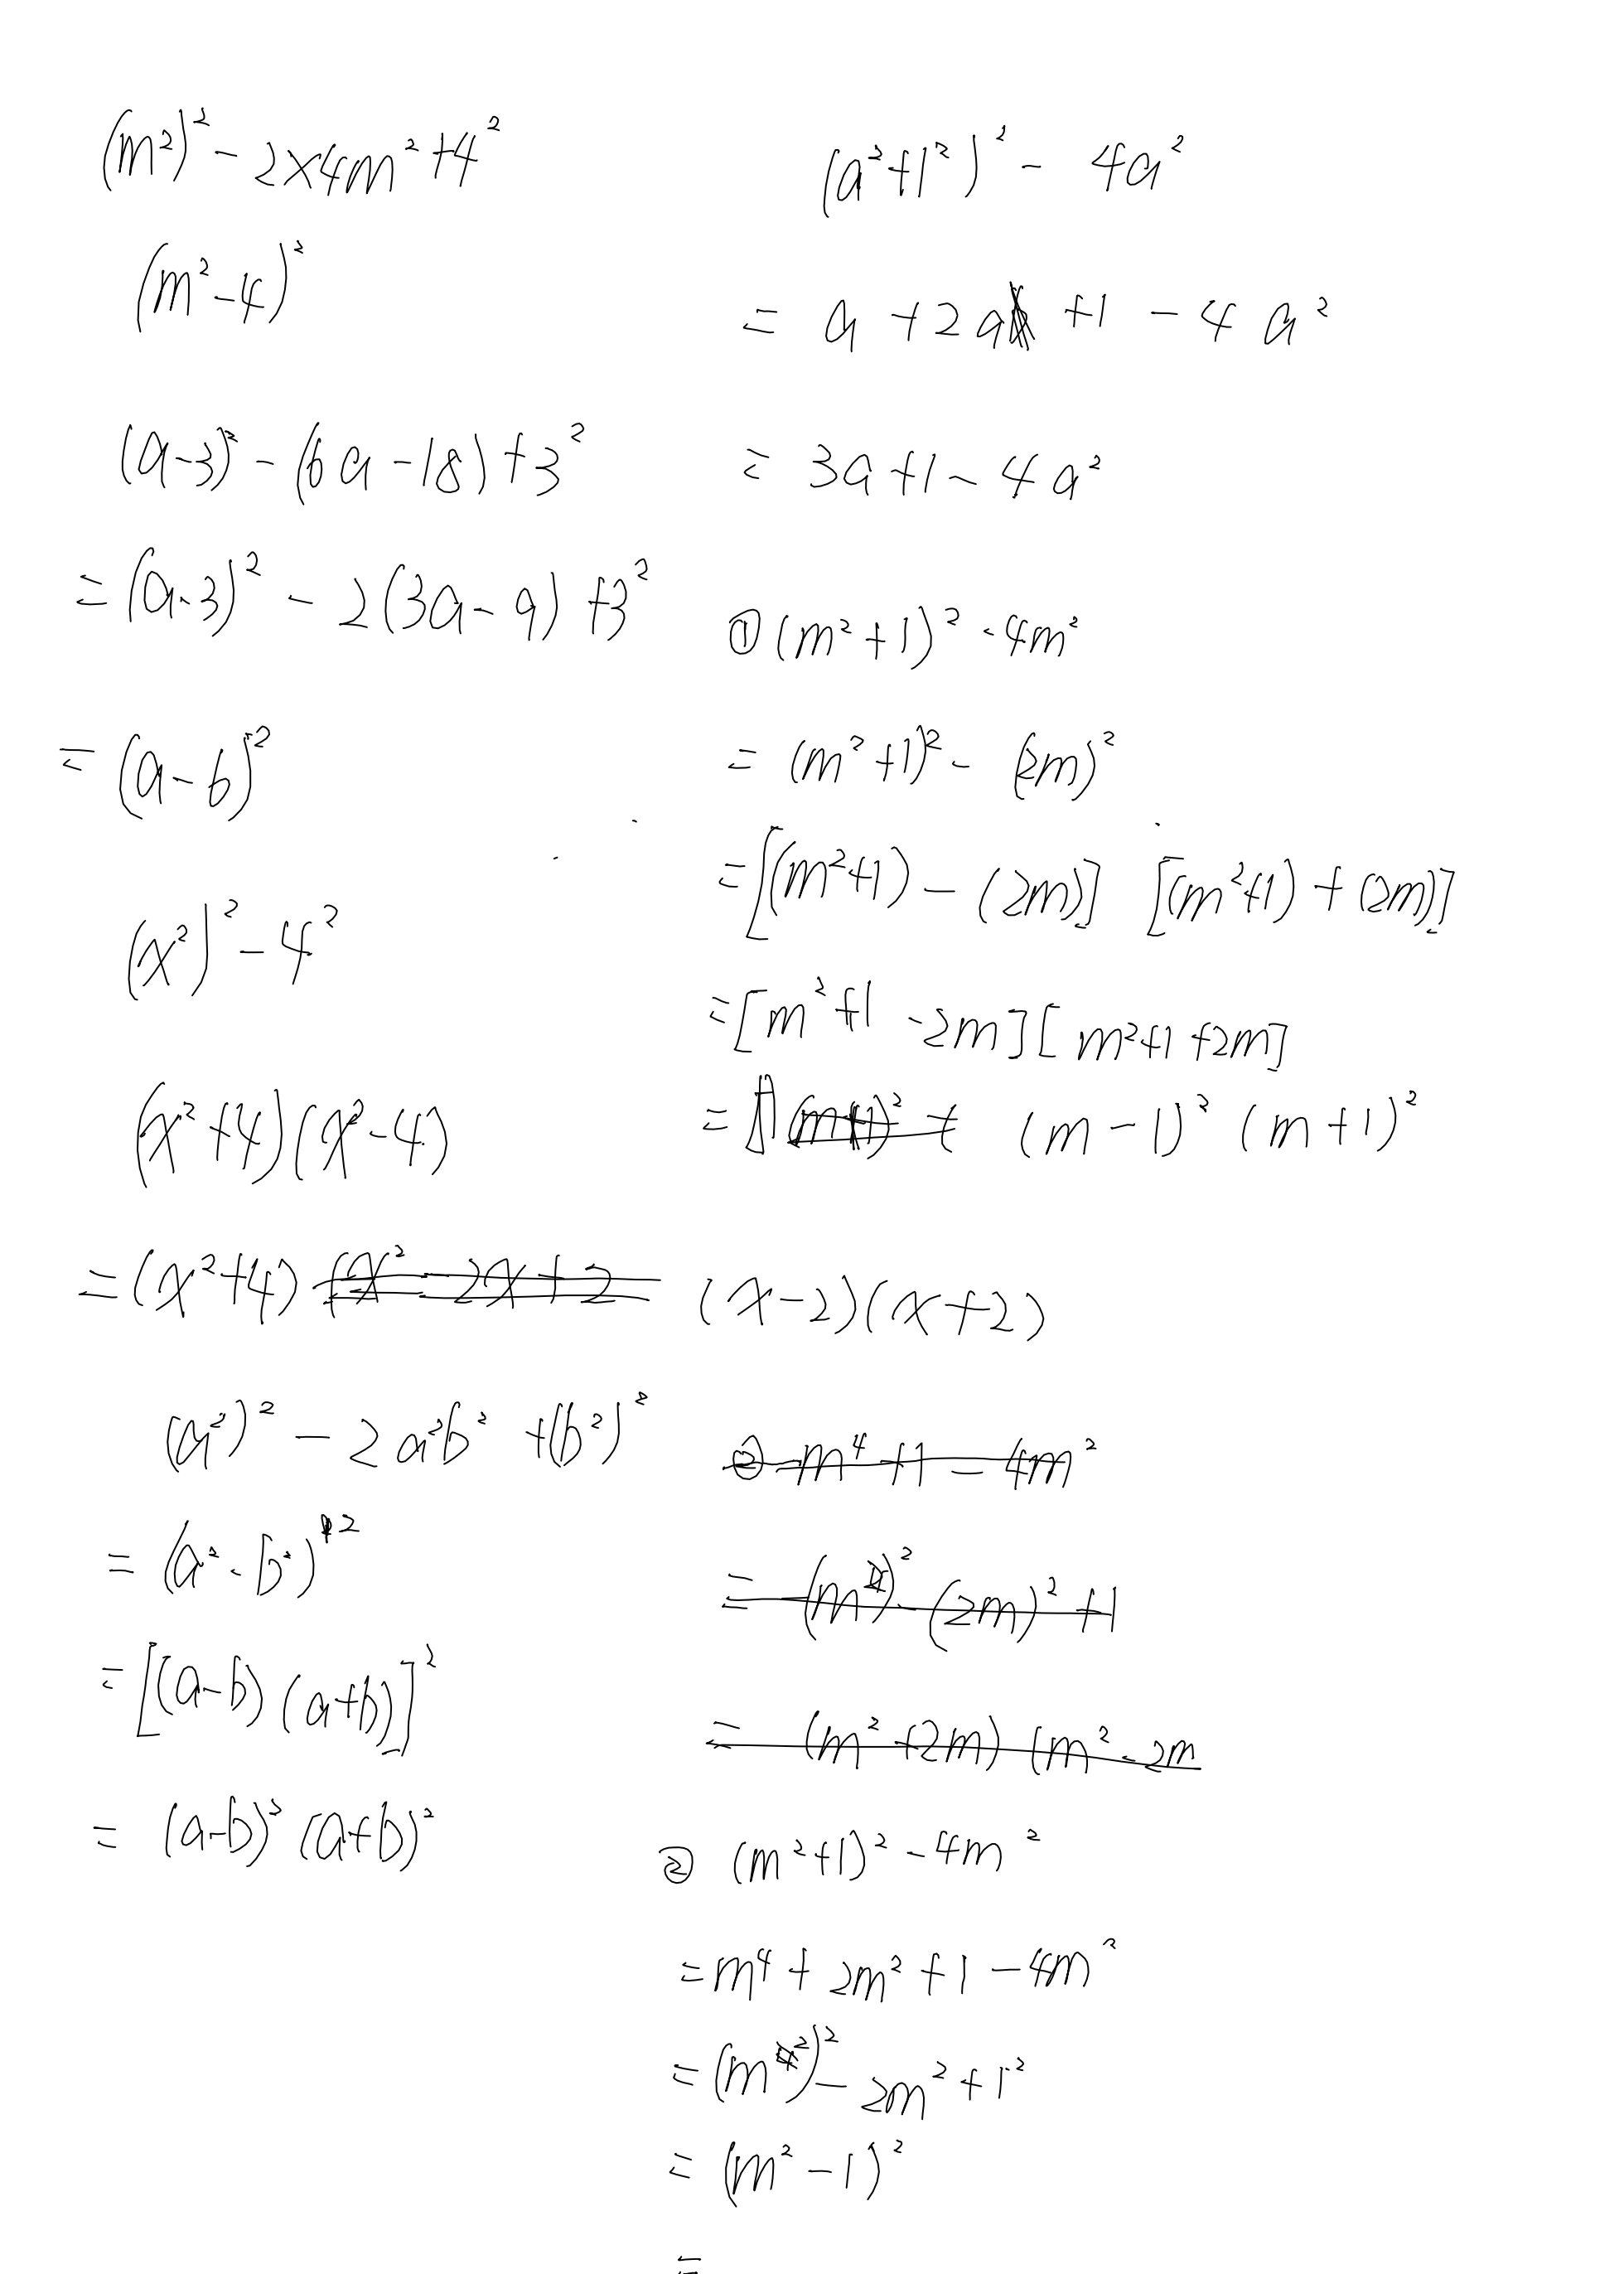 (m²)² - 2×4m² + 4²
(m² - 4)²
(a-3)² - (6a - 18) + 3²
= (a-3)² - 2(3a - 9) + 3²
= (a - 6)²
(x²)² - 4²
(x² + 4)(x² - 4)
= (x² + 4) (x² - 2x + 2 (x - 2)(x + 2)
(a²)² - 2a²b² + (b²)²
= (a² - b²)²
= [(a-b)(a+b)]²
= (a-b)² (a+b)²
(a² + 1²)² - 4a²
= a + 2a + 1 - 4a²
= 3a + 1 - 4a²
① (m² + 1)² - 4m²
= (m² + 1)² - (2m)²
= [(m² + 1) - (2m)] [(m² + 1) + (2m)]
= [m² + 1 - 2m][m² + 1 + 2m]
= (m - 1)² (m + 1)²
② m⁴ + 1 - 4m²
= (m²)² - (2m)² + 1
= (m² + 2m)(m² - 2m
② (m² + 1)² - 4m²
= m⁴ + 2m² + 1 - 4m²
= (m²)² - 2m² + 1²
= (m² - 1)²
=